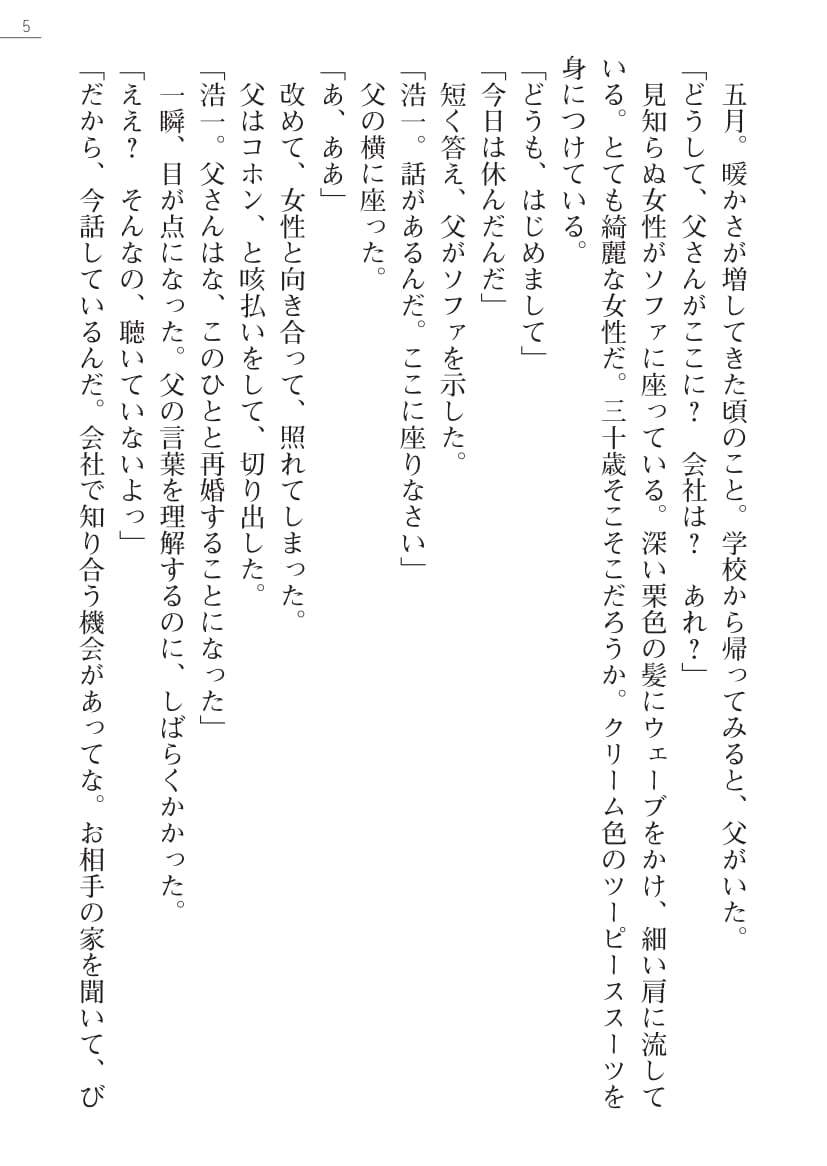 5
五月。暖かさが増してきた頃のこと。学校から帰ってみると、父がいた。
「どうして、父さんがここに？　会社は？　あれ？」
見知らぬ女性がソファに座っている。深い栗色の髪にウェーブをかけ、細い肩に流して
いる。とても綺麗な女性だ。三十歳そこそこだろうか。クリーム色のツーピーススーツを
身につけている。
「どうも、はじめまして」
「今日は休んだんだ」
短く答え、父がソファを示した。
「浩一。話があるんだ。ここに座りなさい」
父の横に座った。
「あ、ああ」
改めて、女性と向き合って、照れてしまった。
父はコホン、と咳払いをして、切り出した。
「浩一。父さんはな、このひとと再婚することになった」
一瞬、目が点になった。父の言葉を理解するのに、しばらくかかった。
「ええ？　そんなの、聴いていないよっ」
「だから、今話しているんだ。会社で知り合う機会があってな。お相手の家を聞いて、び